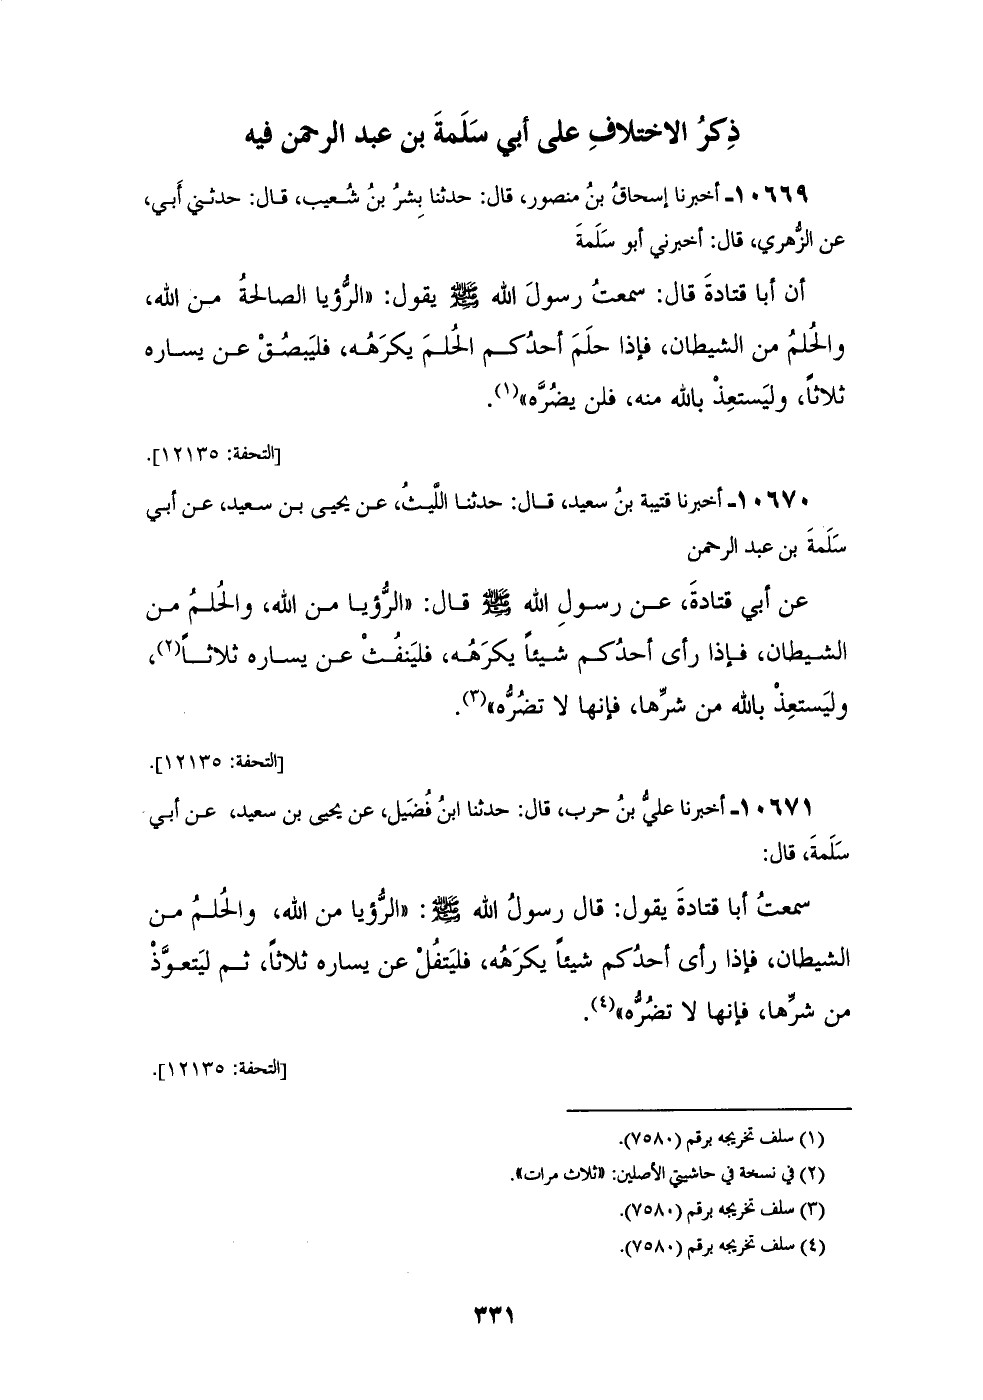 ذِكرُ الاختلافِ على أبي سَلَمةَ بن عبد الرحمن فيه
١٠٦٦٩ـ أخبرنا إسحاقُ بنُ منصور، قال: حدثنا بِشرُ بنُ شُعيب، قال: حدثني أَبي،
عن الزُّهري، قال: أخبرني أبو سَلَمةَ
أن أبا قتادةَ قال: سمعتُ رسولَ الله ﷺ يقول: «الرُّؤيا الصالحةُ من الله،
والحُلمُ من الشيطان، فإذا حلَمَ أحدُكم الحُلمَ يكرَهُه، فليَبصُقْ عن يساره
ثلاثاً، وليَستعِذْ بالله منه، فلن يضُرَّه»(١).
[التحفة: ١٢١٣٥].
١٠٦٧٠ـ أخبرنا قتيبة بنُ سعيد، قال: حدثنا اللَّيثُ، عن يحيى بن سعيد، عن أبي
سَلَمةَ بن عبد الرحمن
عن أبي قتادةَ، عن رسولِ الله ﷺ قال: «الرُّؤيا من الله، والحُلمُ من
الشيطان، فإذا رأى أحدُكم شيئاً يكرَهُه، فليَنفُثْ عن يساره ثلاثاً(٢)،
وليَستعِذْ بالله من شرِّها، فإنها لا تضُرُّه»(٣).
[التحفة: ١٢١٣٥].
١٠٦٧١ـ أخبرنا عليُّ بنُ حرب، قال: حدثنا ابنُ فُضَيل، عن يحيى بن سعيد، عن أبي
سَلَمةَ، قال:
سمعتُ أبا قتادةَ يقول: قال رسولُ الله ﷺ: «الرُّؤيا من الله، والحُلمُ من
الشيطان، فإذا رأى أحدُكم شيئاً يكرَهُه، فليَتفُلْ عن يساره ثلاثاً، ثم ليَتعوَّذْ
من شرِّها، فإنها لا تضُرُّه»(٤).
[التحفة: ١٢١٣٥].
(١) سلف تخريجه برقم (٧٥٨٠).
(٢) في نسخة في حاشيتي الأصلين: «ثلاث مرات».
(٣) سلف تخريجه برقم (٧٥٨٠).
(٤) سلف تخريجه برقم (٧٥٨٠).
٣٣١